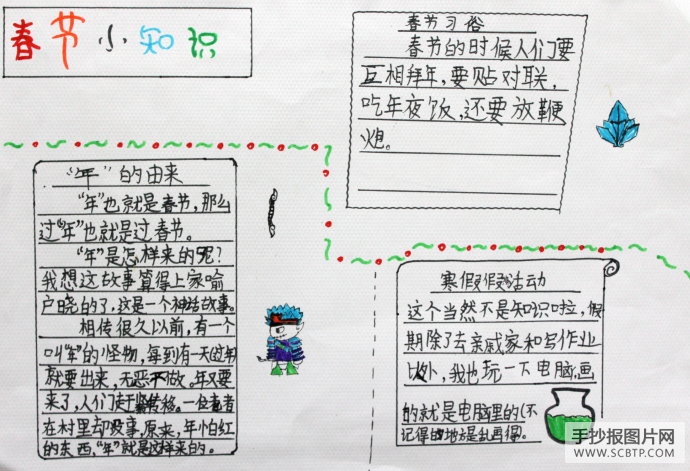 春节小知识
春节习俗
春节的时候人们要
互相拜年,要贴对联,
吃年夜饭,还要放鞭
炮。
"年"的由来
"年"也就是春节,那么
过"年"也就是过春节。
"年"是怎样来的呢?
我想这故事算得上家喻
户晓的了,这是一个神话故事。
相传很久以前,有一个
叫"年"的怪物,每到有一天的时
就要出来,无恶不做。年又要
来了,人们赶紧转移。一位老者
在村里却没事,原来,年怕红
的东西,"年"就是这样来的。
寒假假活动
这个当然不是知识啦,假
期除了去亲戚家和写作业
以外,我也玩一下电脑,画
的就是电脑里的(不
记得的地方是乱画得。
手抄报图片网
WWW.SCBTP.COM